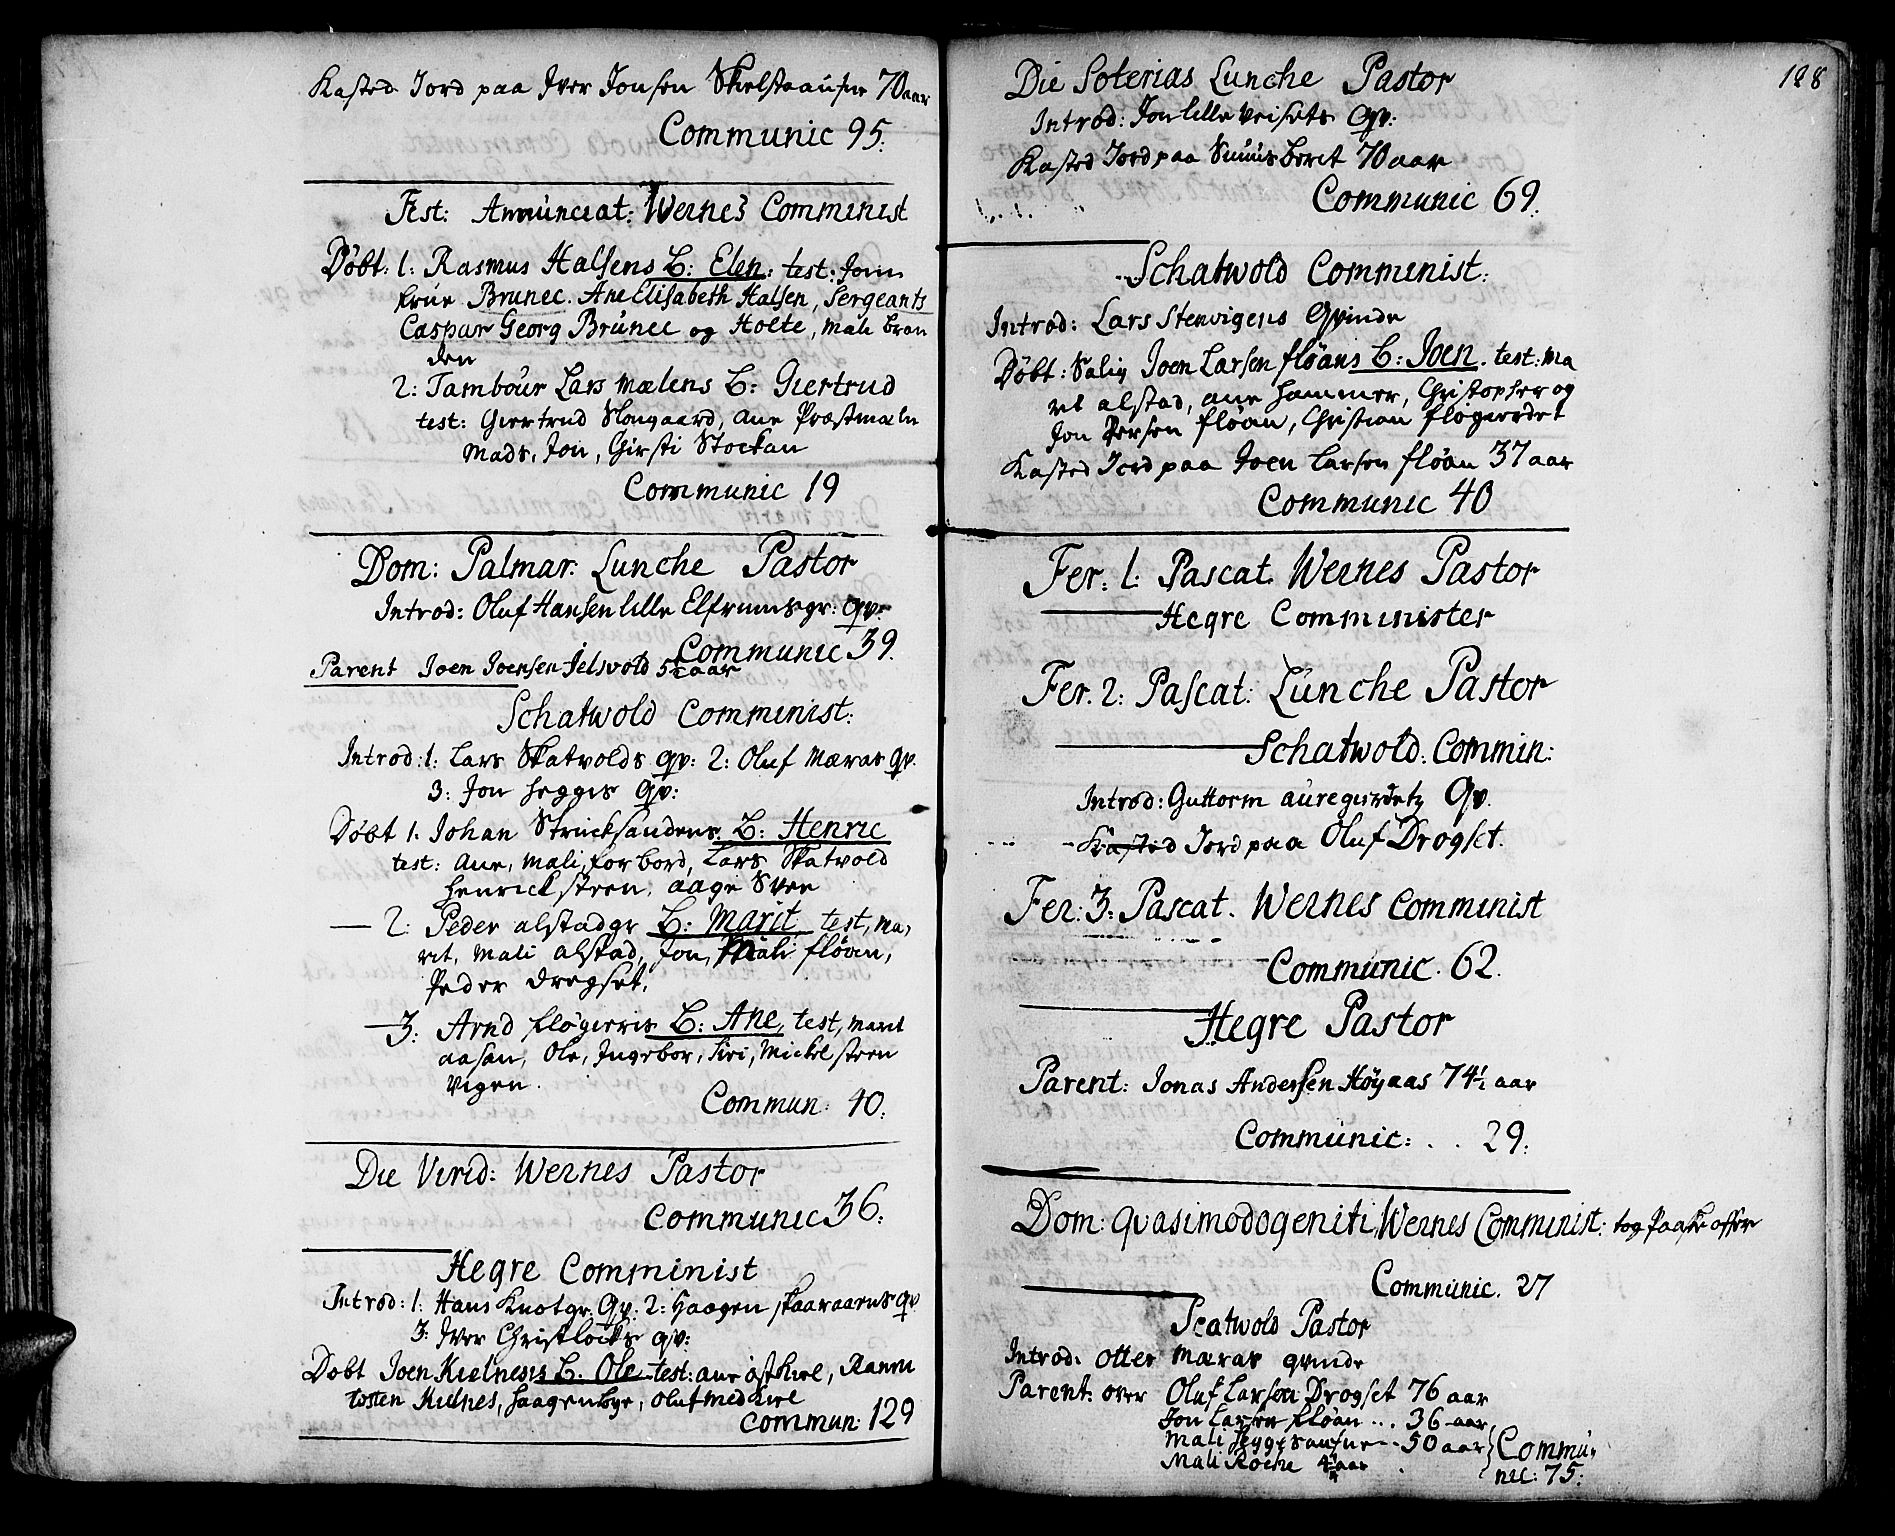 Kasted Jord paa Iver Jonsen Skelstaausne 70 aar
Communic 95.
Fest: Annunciat: Wernes Comminist
Døbt: 1: Rasmus Halsens B: Elen: test: Jom
frue Brunec. Ane Elisabeth Halsen, Sergeants
Caspar Georg Brunec og Holte, mali bran
den
2: Tambour Lars Mælens B: Giertrud
test: Giertrud Slougaard, ane Præstmæln
Mads, Jon, Girsti Stockan
Communic 19
Dom: Palmar: Lunche Pastor
Introd: Oluf Hansen lille Elfrumsgr: qv:
Communic 39.
Parent Joen Joensen Jelsvold aar
Schatwold Comminist:
Introd: 1: Lars Skatvolds qv: 2: Oluf Mæras qv.
3: Jon hegges qv:
Døbt 1. Johan Strucksandens. B: Henric
test: Ane, Mali forbord, Lars Skatvold
Henrick steen, aage Sven
— 2: Peder alstadgr B: Marit test, ma,
rit, Mali alstad, Jon, Mali fløan,
Peder Dregset.
— 3: Arnd fløgierris B: Ane, test, Marit
aasan, Ole, Ingebor, Siri, Mickel steen
vigen.
Commun: 40.
Die Virid: Wernes Pastor
Communic 36.
Hegre Comminist
Introd: 1: Hans Knotgr. Qv. 2: Haagen skaaraarns qv
3: Iver Christlocks qv:
Døbt Joen Kielneses B. Ole test: ane østkiel, Rannu
tosten Kielnes, haagenbye, oluf medkiel
Commun: 129
188
Die Soterias Lunche Pastor
Introd: Jon lille veisets qv:
Kasted Jord paa Beret 70 aar
Communic 69.
Schatwold Comminist:
Introd: Lars Stenvigens Qvinde
Døbt: Salig Joen Larsen fløans B: Joen. test: ma
rit alstad, ane hammer, Christopher og
Jon Persen fløan, Christian fløgierdet
Kasted Jord paa Joen Larsen fløan 37 aar
Communic 40
Fer: 1: Pascat. Wernes Pastor
Hegre Comminister
Fer. 2: Pascat: Lunche Pastor
Schatwold. Commin:
Introd: Guttorm auregierdetz Qv.
Kasted Jord paa Oluf Drogset.
Fer: 3: Pascat. Wernes Comminist
Communic. 62.
Hegre Pastor
Parent: Jonas Andersen Høyaas 74½ aar
Communic: . . 29.
Dom: Quasimodogeniti, Wernes Comminist: tog Paaske offer
Communic. 27
Scatwold Pastor
Introd: Otter Mæras qvinde
Parent: over Oluf Larsen Drogset 76 aar
Jon Larsen fløan ... 36 aar
Mali heggesausne - - 50 aar } Commu,
Mali Roche aar
nic: 75.